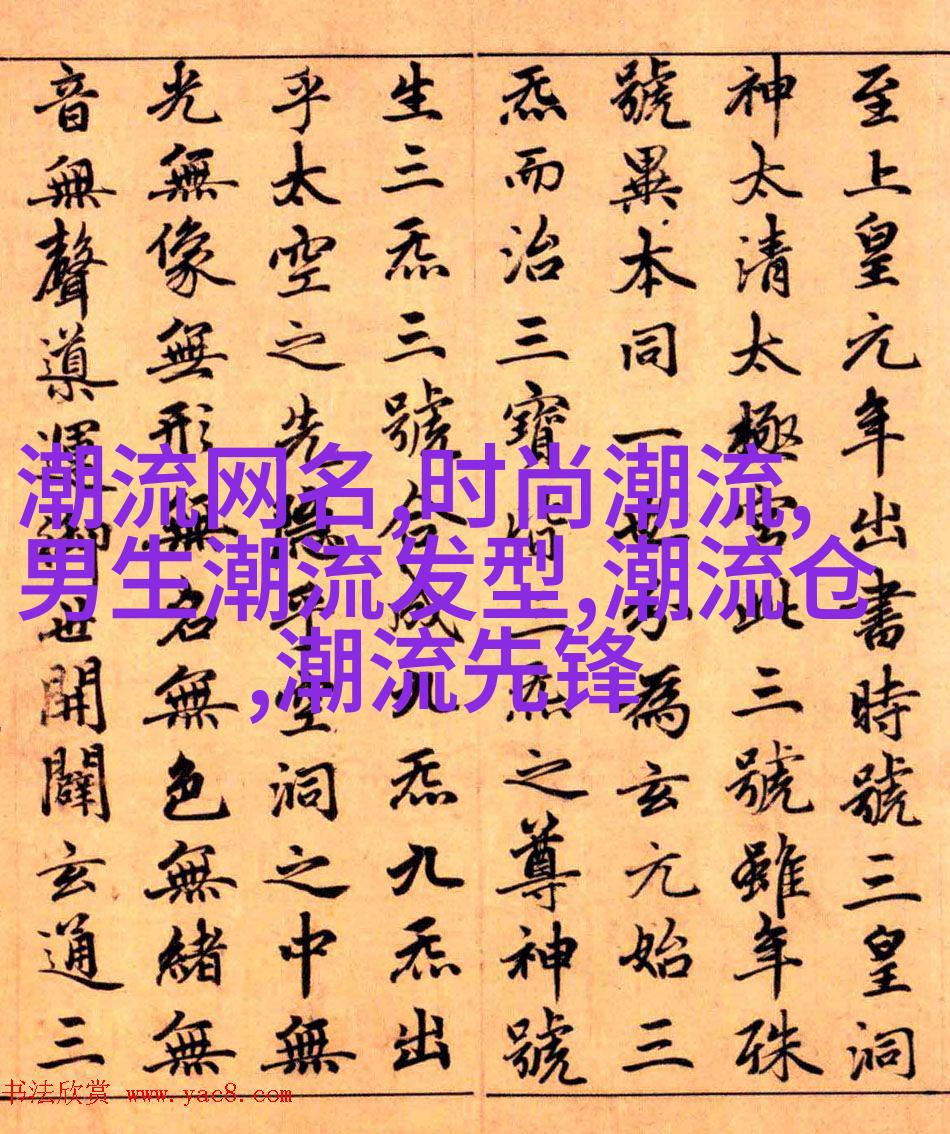 至上皇元年出書時號三皇洞
神太清太極宮此三號雖年殊
號異本同一分為玄元始三
炁而治三寶皆三炁之尊神號
生三炁三號合成九炁九炁出
乎太空之先隱乎空洞之中無
光無像無形無名無色無緒無
音無聲導運御世開闢玄通三
潮流网名,时尚潮流,
男生潮流发型,潮流仓
,潮流先锋
书法欣赏 www.yac8.com